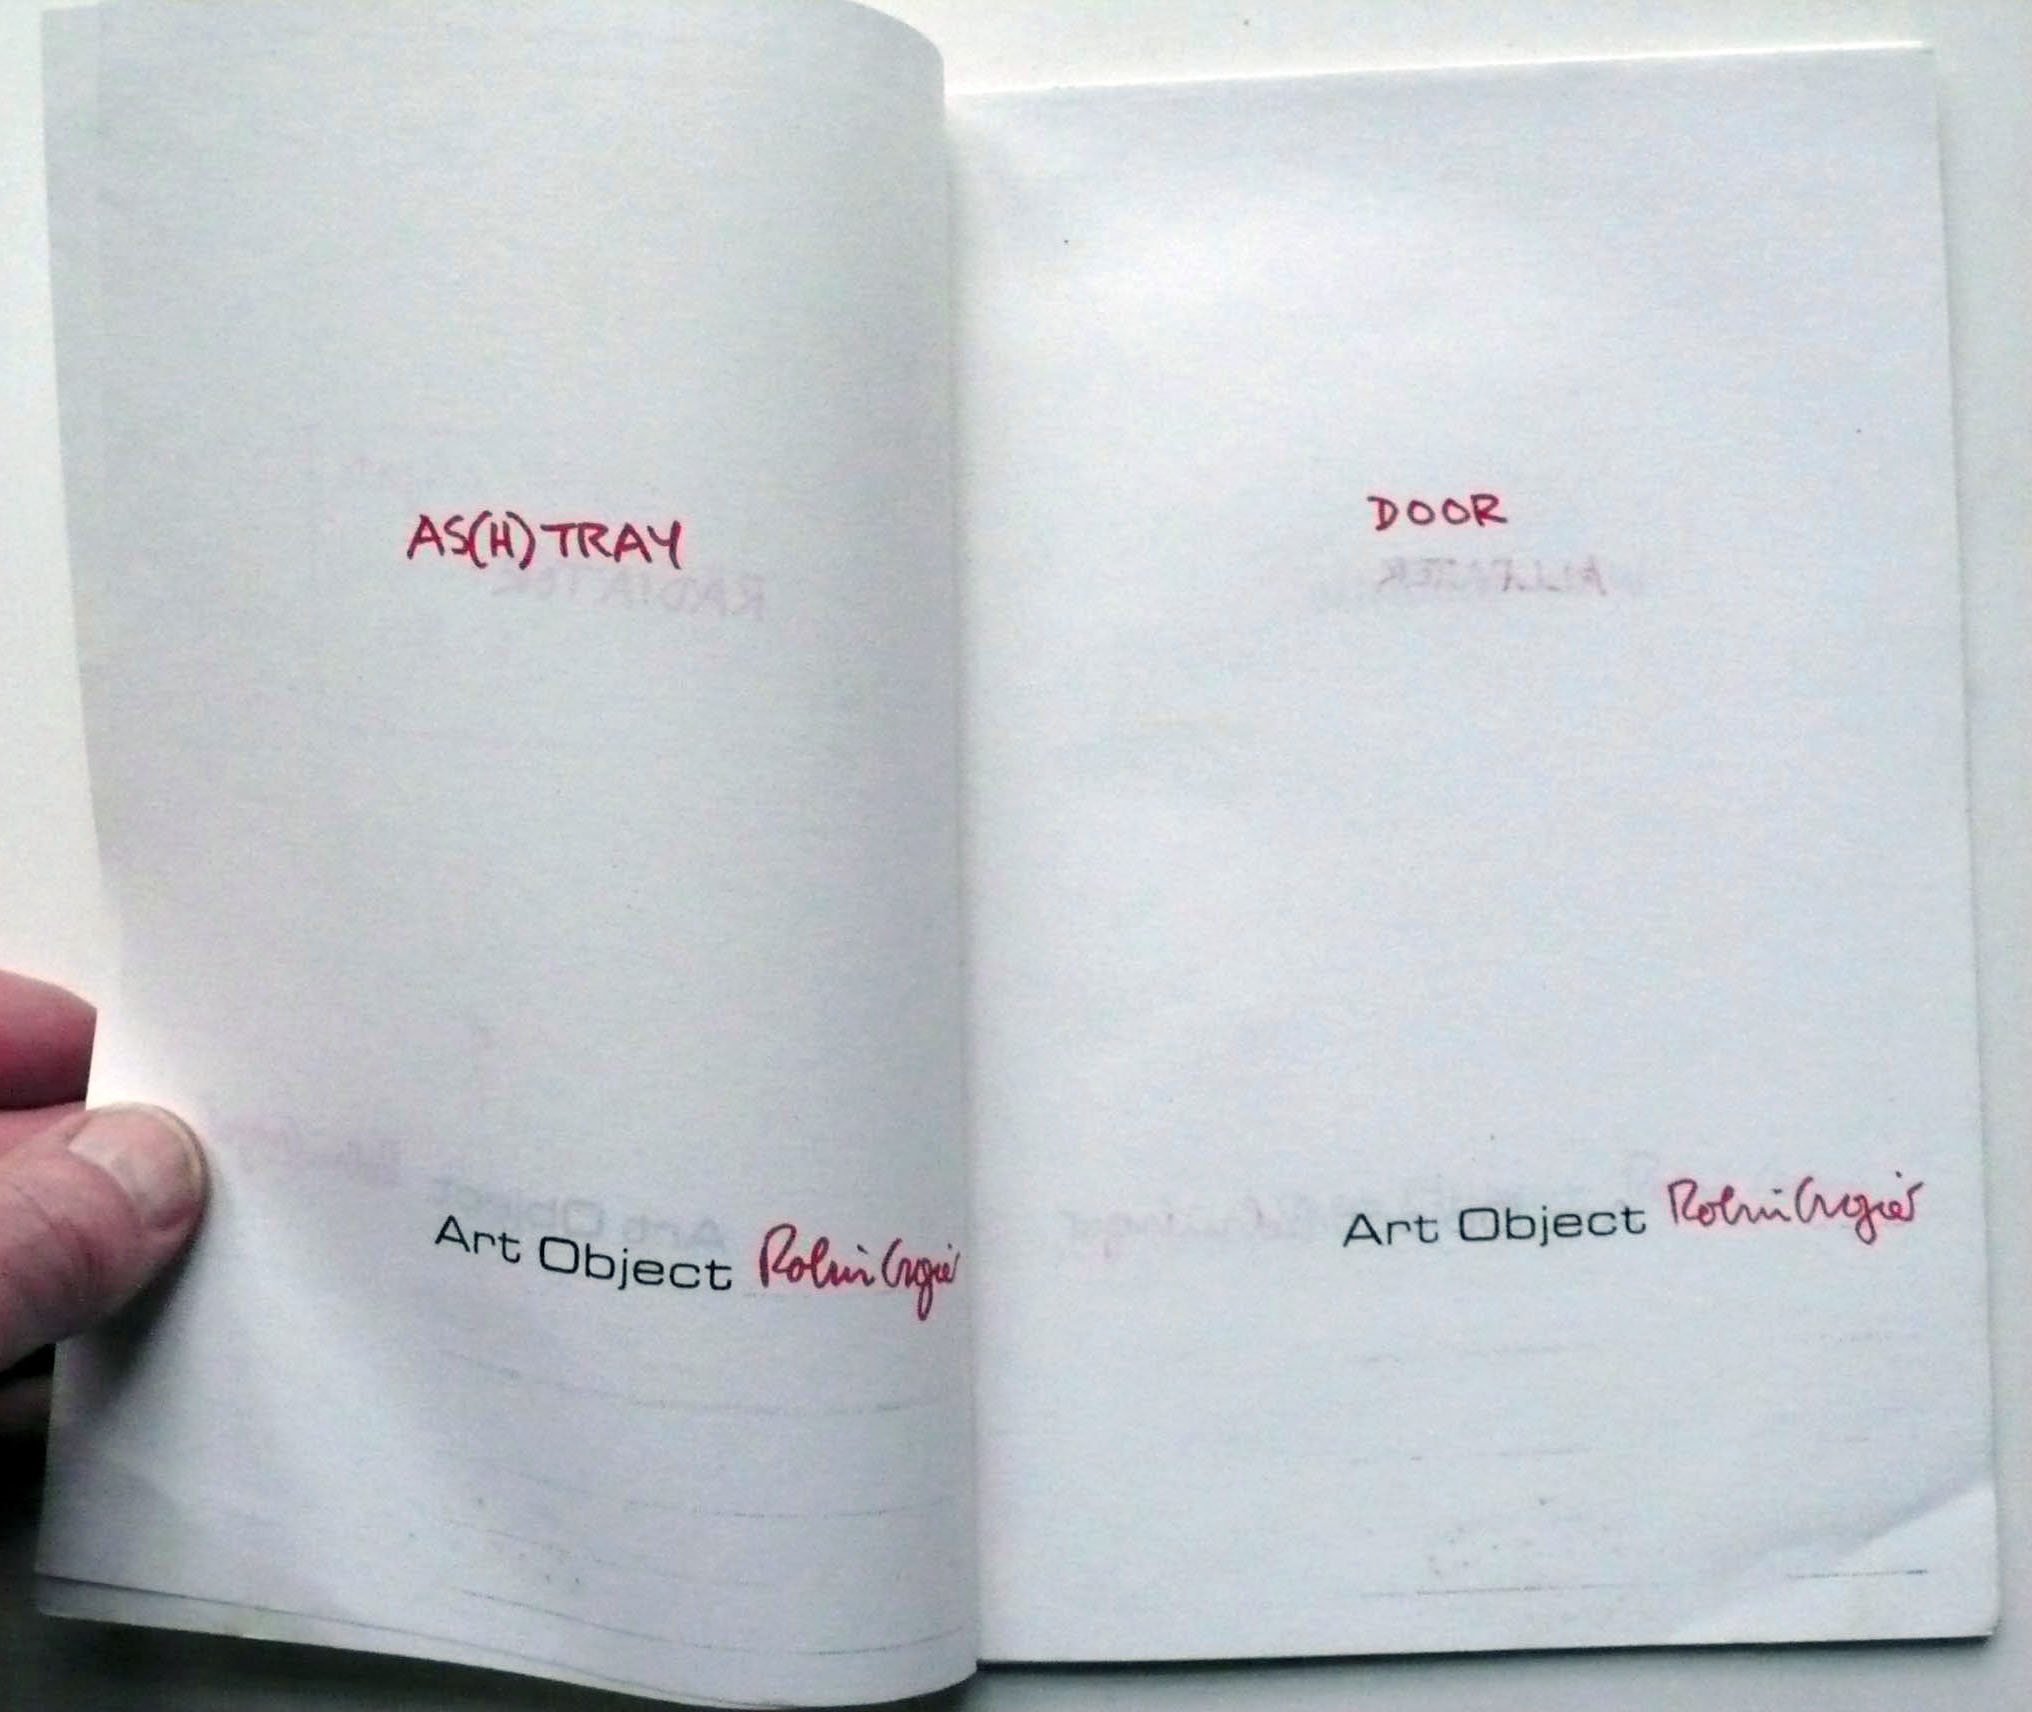 AS(H)TRAY
Art Object Robin Crozier
DOOR
Art Object Robin Crozier